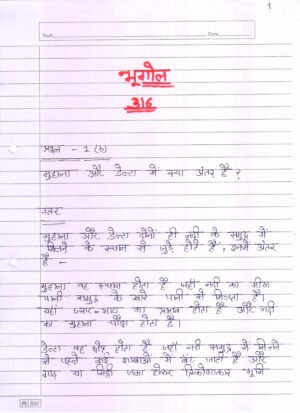 1
Topic
Date
भूगोल
316
प्रश्न - 1 (b)
मुहाना और डेल्टा में क्या अंतर है ?
उत्तर
मुहाना और डेल्टा दोनों ही नदी के समुद्र में
मिलने के स्थान से जुड़े होते हैं, इनमें अंतर
है -
मुहाना वह स्थान होता है जहाँ नदी का मीठा
पानी समुद्र के खारे पानी से मिलता है।
यहां ज्वार-भाटा का प्रभाव होता है और नदी
का मुहाना चौड़ा होता है।
डेल्टा वह क्षेत्र होता है जहाँ नदी समुद्र में मिलने
से पहले कई शाखाओं में बंट जाती है और
गाद या मिट्टी जमा होकर त्रिकोणाकार भूमि